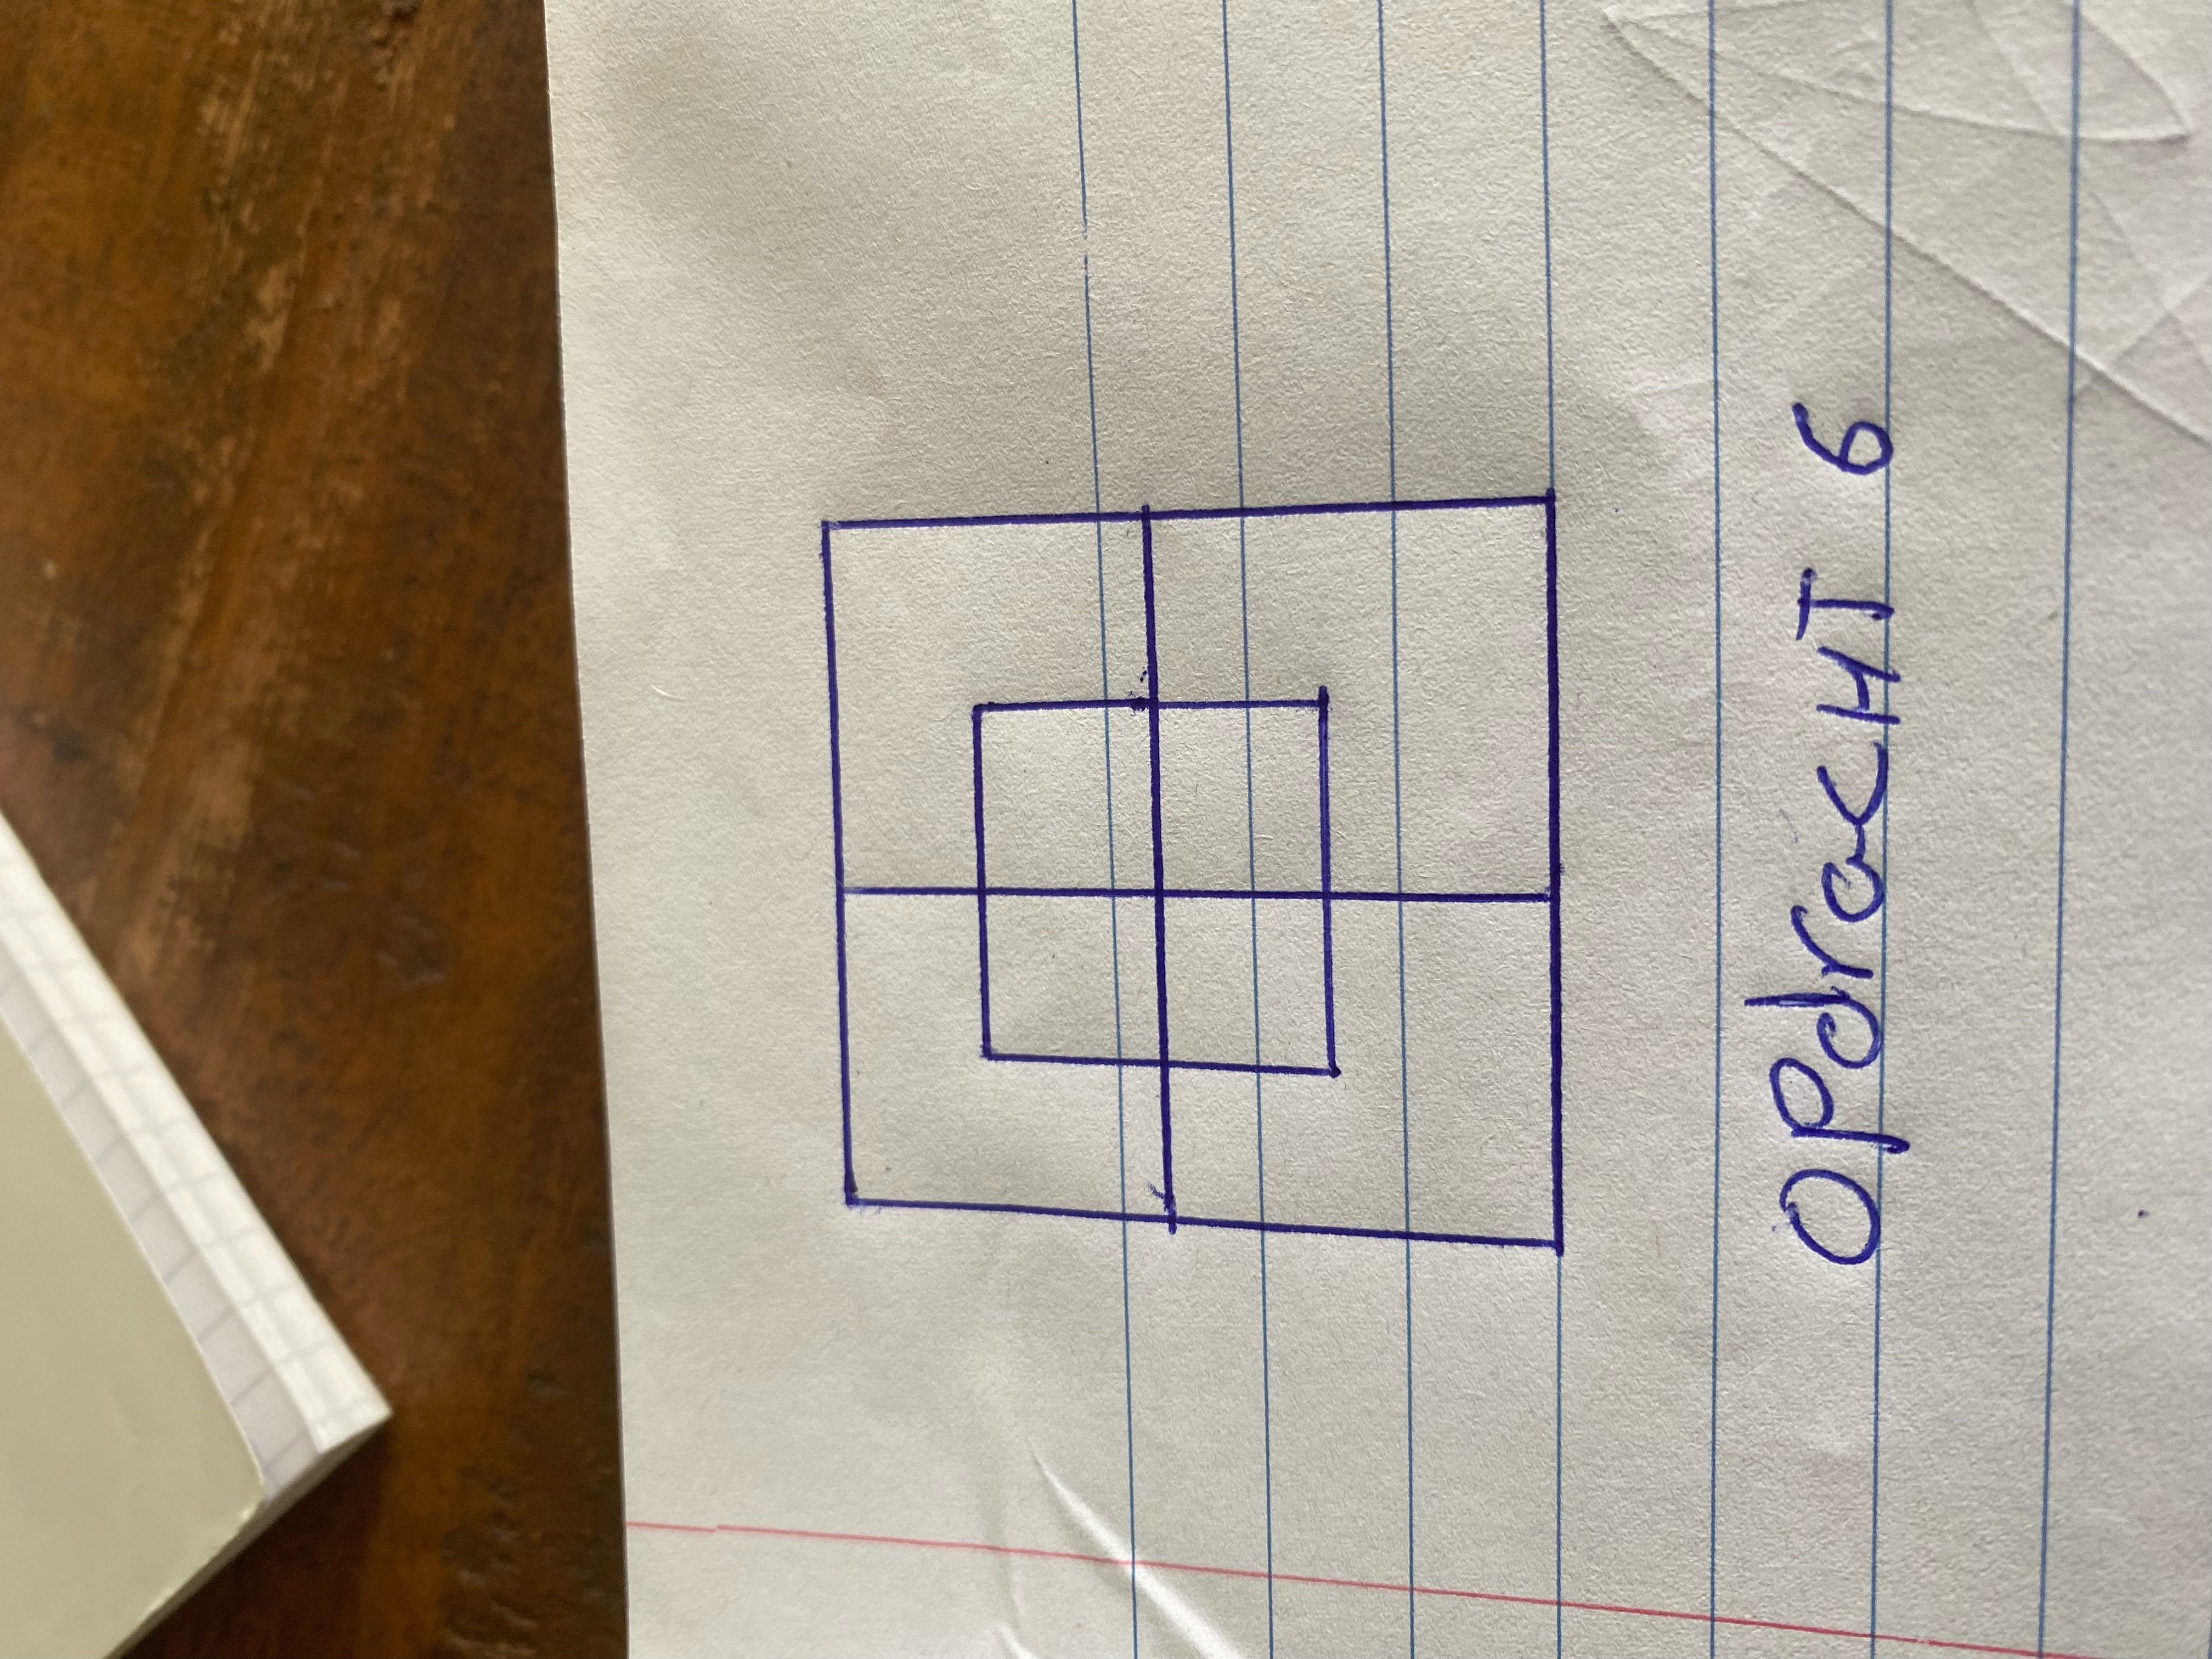 OPdrachT 6